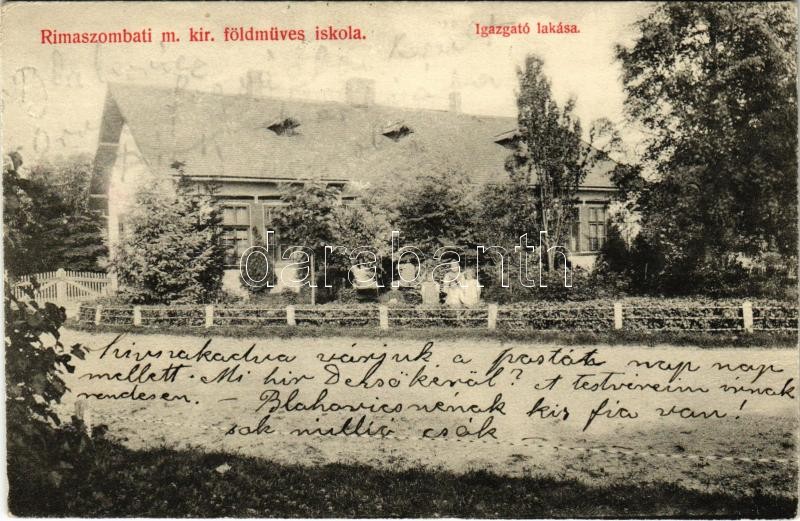 Rimaszombati m. kir. földmüves iskola.
Igazgató lakása.
darabanth
Kivszakadva várjuk a postát nap nap
mellett. Mi hir Dezsőkéről? A testvéreim irnak
rendesen. - Blahovicsnénak kis fia van!
sok millió csók